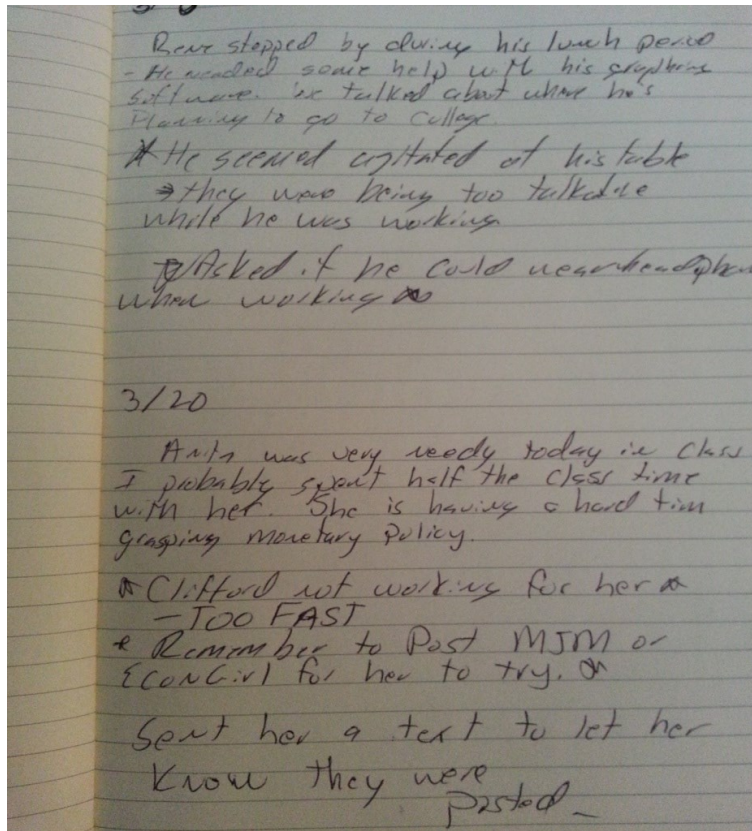 Rene stopped by during his lunch period
- He needed some help with his graphing
software. We talked about where he's
Planning to go to college.
* He seemed agitated at his table
→ they were being too talkative
while he was working
Asked if he could wear headphones
when working
3/20
Anita was very needy today in class
I probably spent half the class time
with her. She is having a hard time
grasping monetary policy.
* Clifford not working for her *
- TOO FAST
* Remember to Post MJM or
EconGirl for her to try. *
Sent her a text to let her
Know they were
posted_